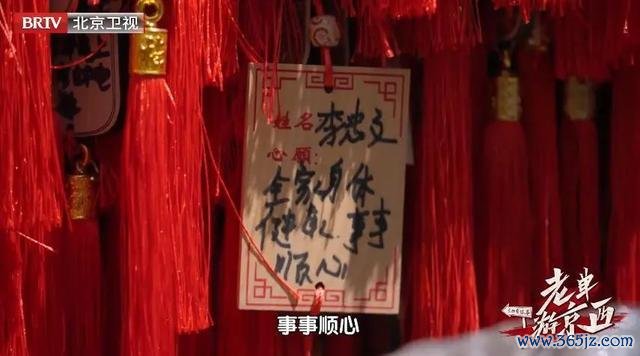 BRTV 北京卫视
姓名:李忠文
心愿:
全家身体
健康.事事
顺心
事事顺心
老单
新京西
www.365jz.com